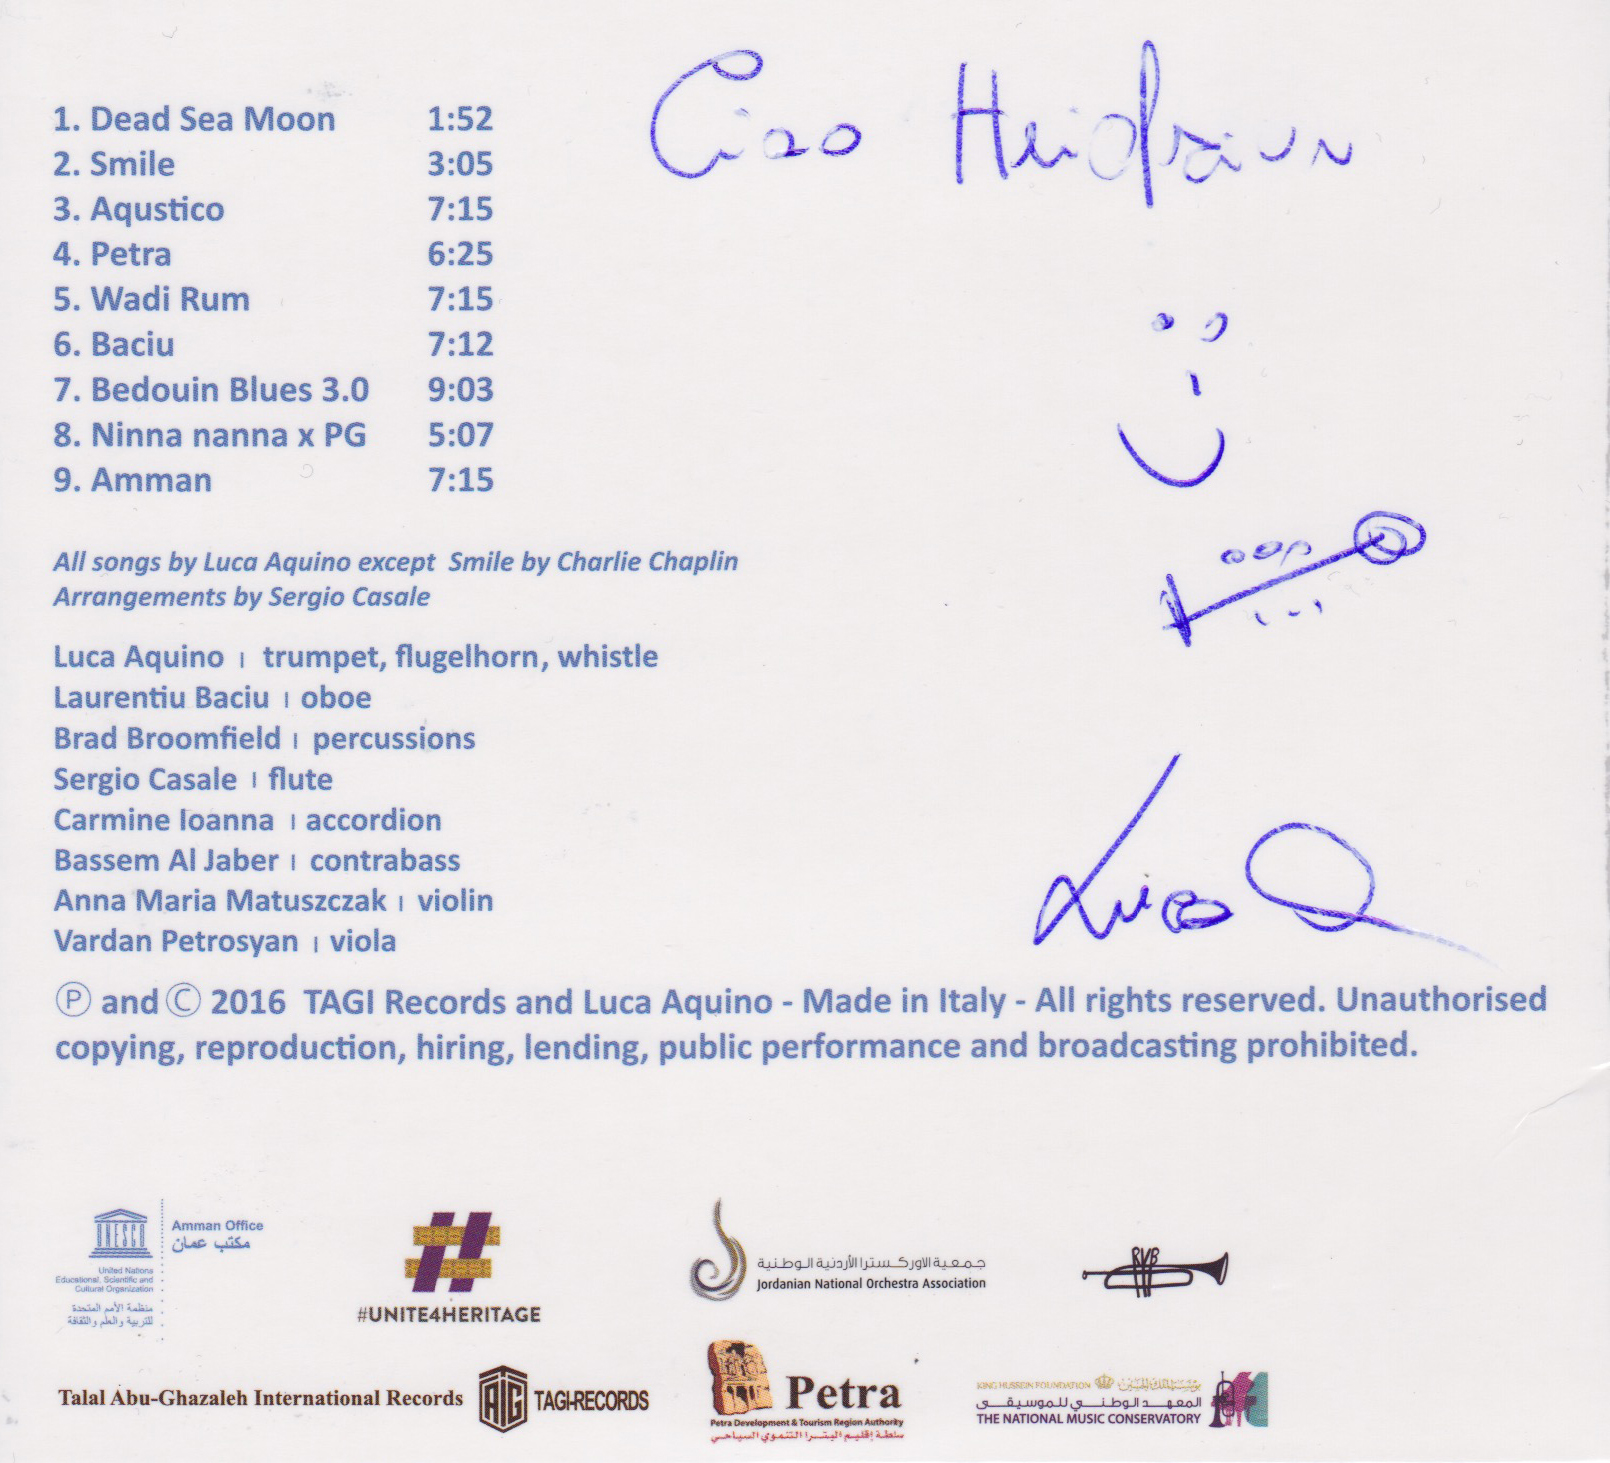 1. Dead Sea Moon 1:52
2. Smile 3:05
3. Aqustico 7:15
4. Petra 6:25
5. Wadi Rum 7:15
6. Baciu 7:12
7. Bedouin Blues 3.0 9:03
8. Ninna nanna x PG 5:07
9. Amman 7:15
Ciao
All songs by Luca Aquino except Smile by Charlie Chaplin
Arrangements by Sergio Casale
Luca Aquino | trumpet, flugelhorn, whistle
Laurentiu Baciu | oboe
Brad Broomfield | percussions
Sergio Casale | flute
Carmine Ioanna | accordion
Bassem Al Jaber | contrabass
Anna Maria Matuszczak | violin
Vardan Petrosyan | viola
Luca
Ⓟ and Ⓒ 2016 TAGI Records and Luca Aquino - Made in Italy - All rights reserved. Unauthorised
copying, reproduction, hiring, lending, public performance and broadcasting prohibited.
UNESCO
Amman Office
مكتب عمان
United Nations
Educational, Scientific and
Cultural Organization
منظمة الأمم المتحدة
للتربية والعلم والثقافة
#UNITE4HERITAGE
جمعية الاوركسترا الأردنية الوطنية
Jordanian National Orchestra Association
Talal Abu-Ghazaleh International Records
TAGI-RECORDS
Petra
Petra Development & Tourism Region Authority
سلطة إقليم البترا التنموي السياحي
KING HUSSEIN FOUNDATION مؤسسة الملك الحسين
المعهد الوطني للموسيقى
THE NATIONAL MUSIC CONSERVATORY